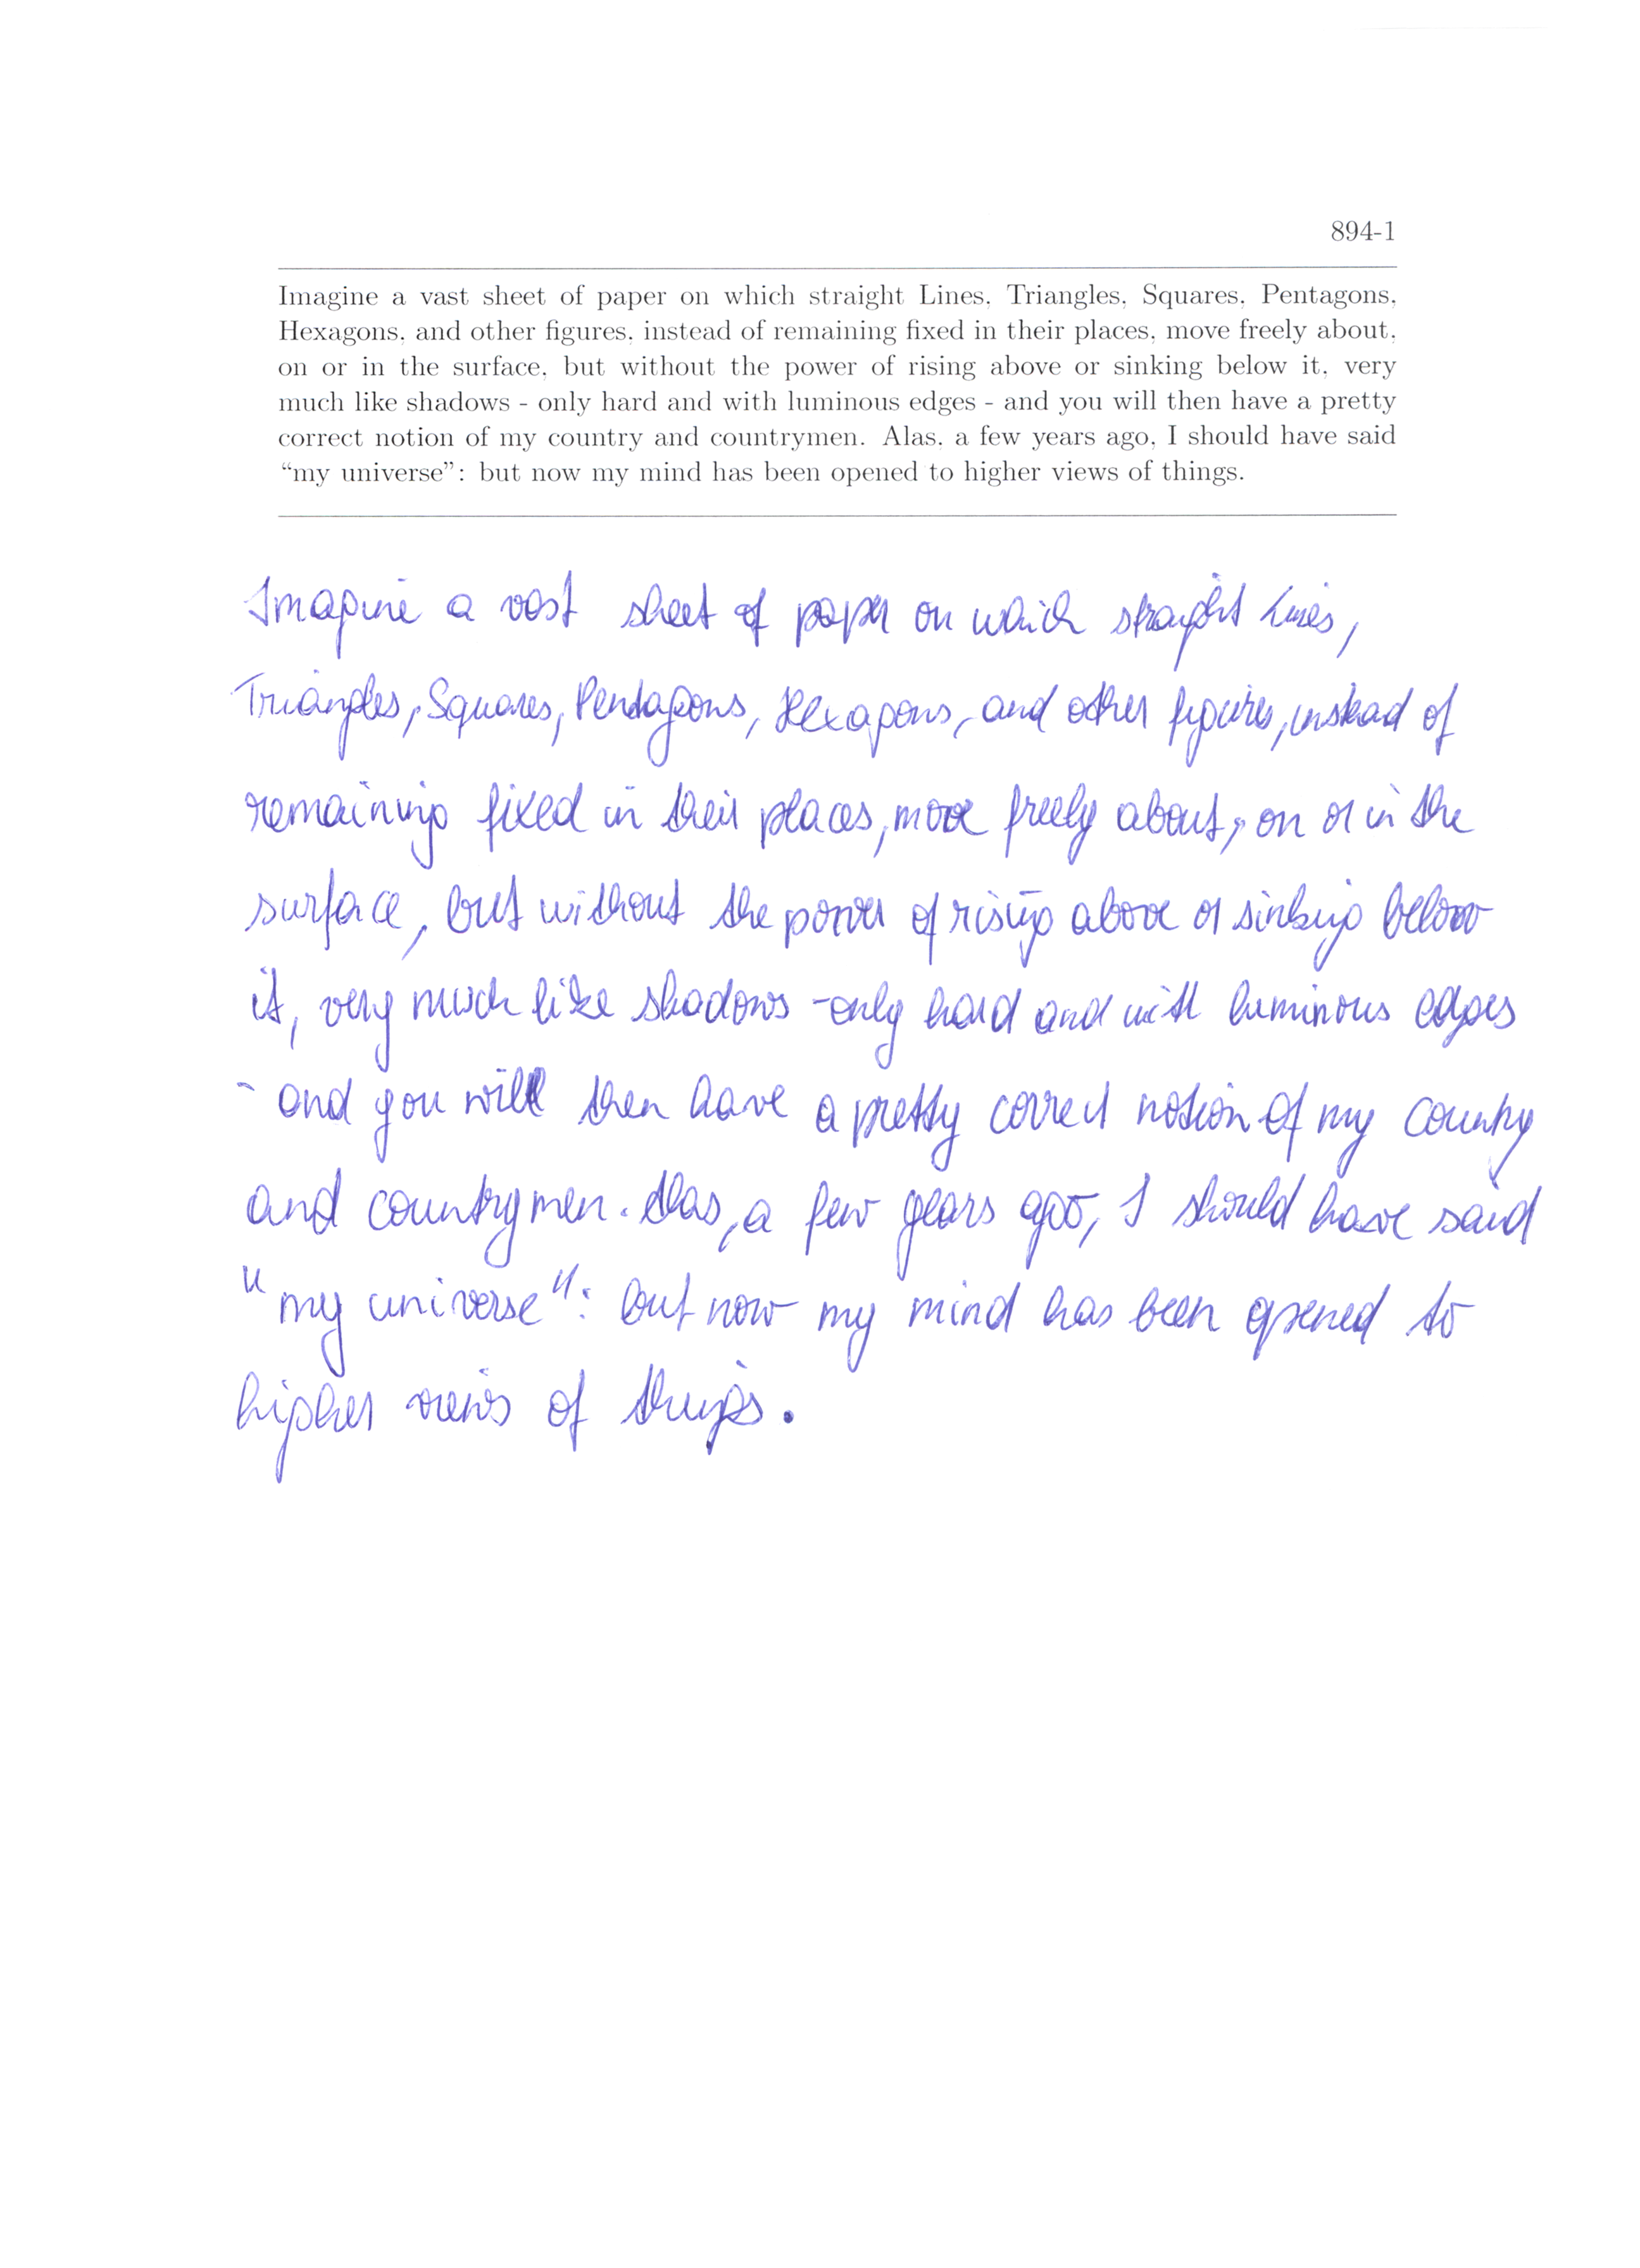 894-1
Imagine a vast sheet of paper on which straight Lines, Triangles, Squares, Pentagons,
Hexagons, and other figures, instead of remaining fixed in their places, move freely about,
on or in the surface, but without the power of rising above or sinking below it, very
much like shadows - only hard and with luminous edges - and you will then have a pretty
correct notion of my country and countrymen. Alas, a few years ago, I should have said
“my universe”: but now my mind has been opened to higher views of things.
Imagine a vast sheet of paper on which straight Lines,
Triangles, Squares, Pentagons, Hexagons, and other figures, instead of
remaining fixed in their places, move freely about, on or in the
surface, but without the power of rising above or sinking below
it, very much like shadows - only hard and with luminous edges
- and you will then have a pretty correct notion of my country
and countrymen. Alas, a few years ago, I should have said
"my universe": but now my mind has been opened to
higher views of things.